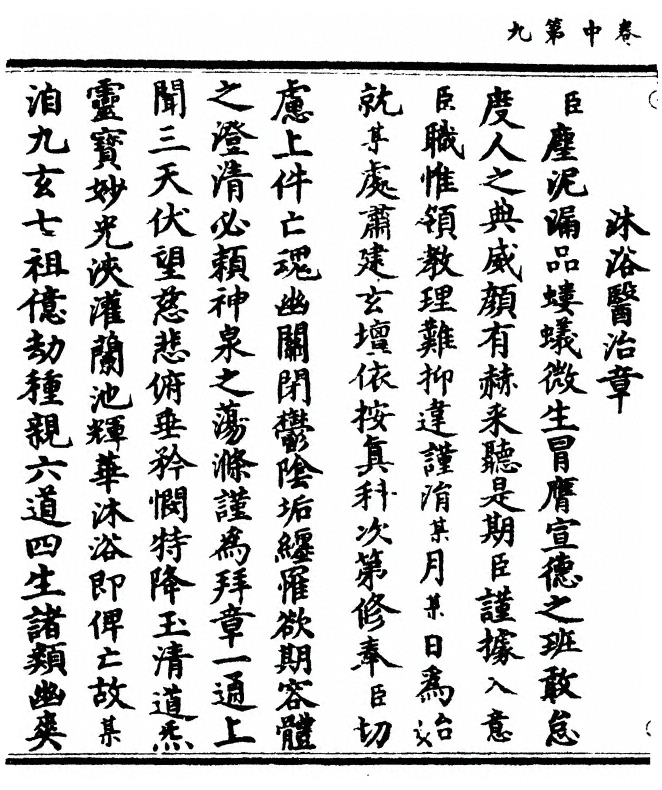 卷中第九
沐浴醫治章
臣塵泥漏品螻蟻微生冒膺宣德之班敢怠
度人之典威顏有赫釆聽是期臣謹據入意
臣職惟領教理難抑違謹涓某月某日為始
就某處肅建玄壇依按真科次第修奉臣切
慮上件亡魂幽關閉鬱陰垢纏罹欲期容體
之澄清必賴神泉之蕩滌謹為拜章一通上
聞三天伏望慈悲俯垂矜憫特降玉清道炁
靈寶妙光浹灌蘭池輝華沐浴即俾亡故某
洎九玄七祖億劫種親六道四生諸類幽爽